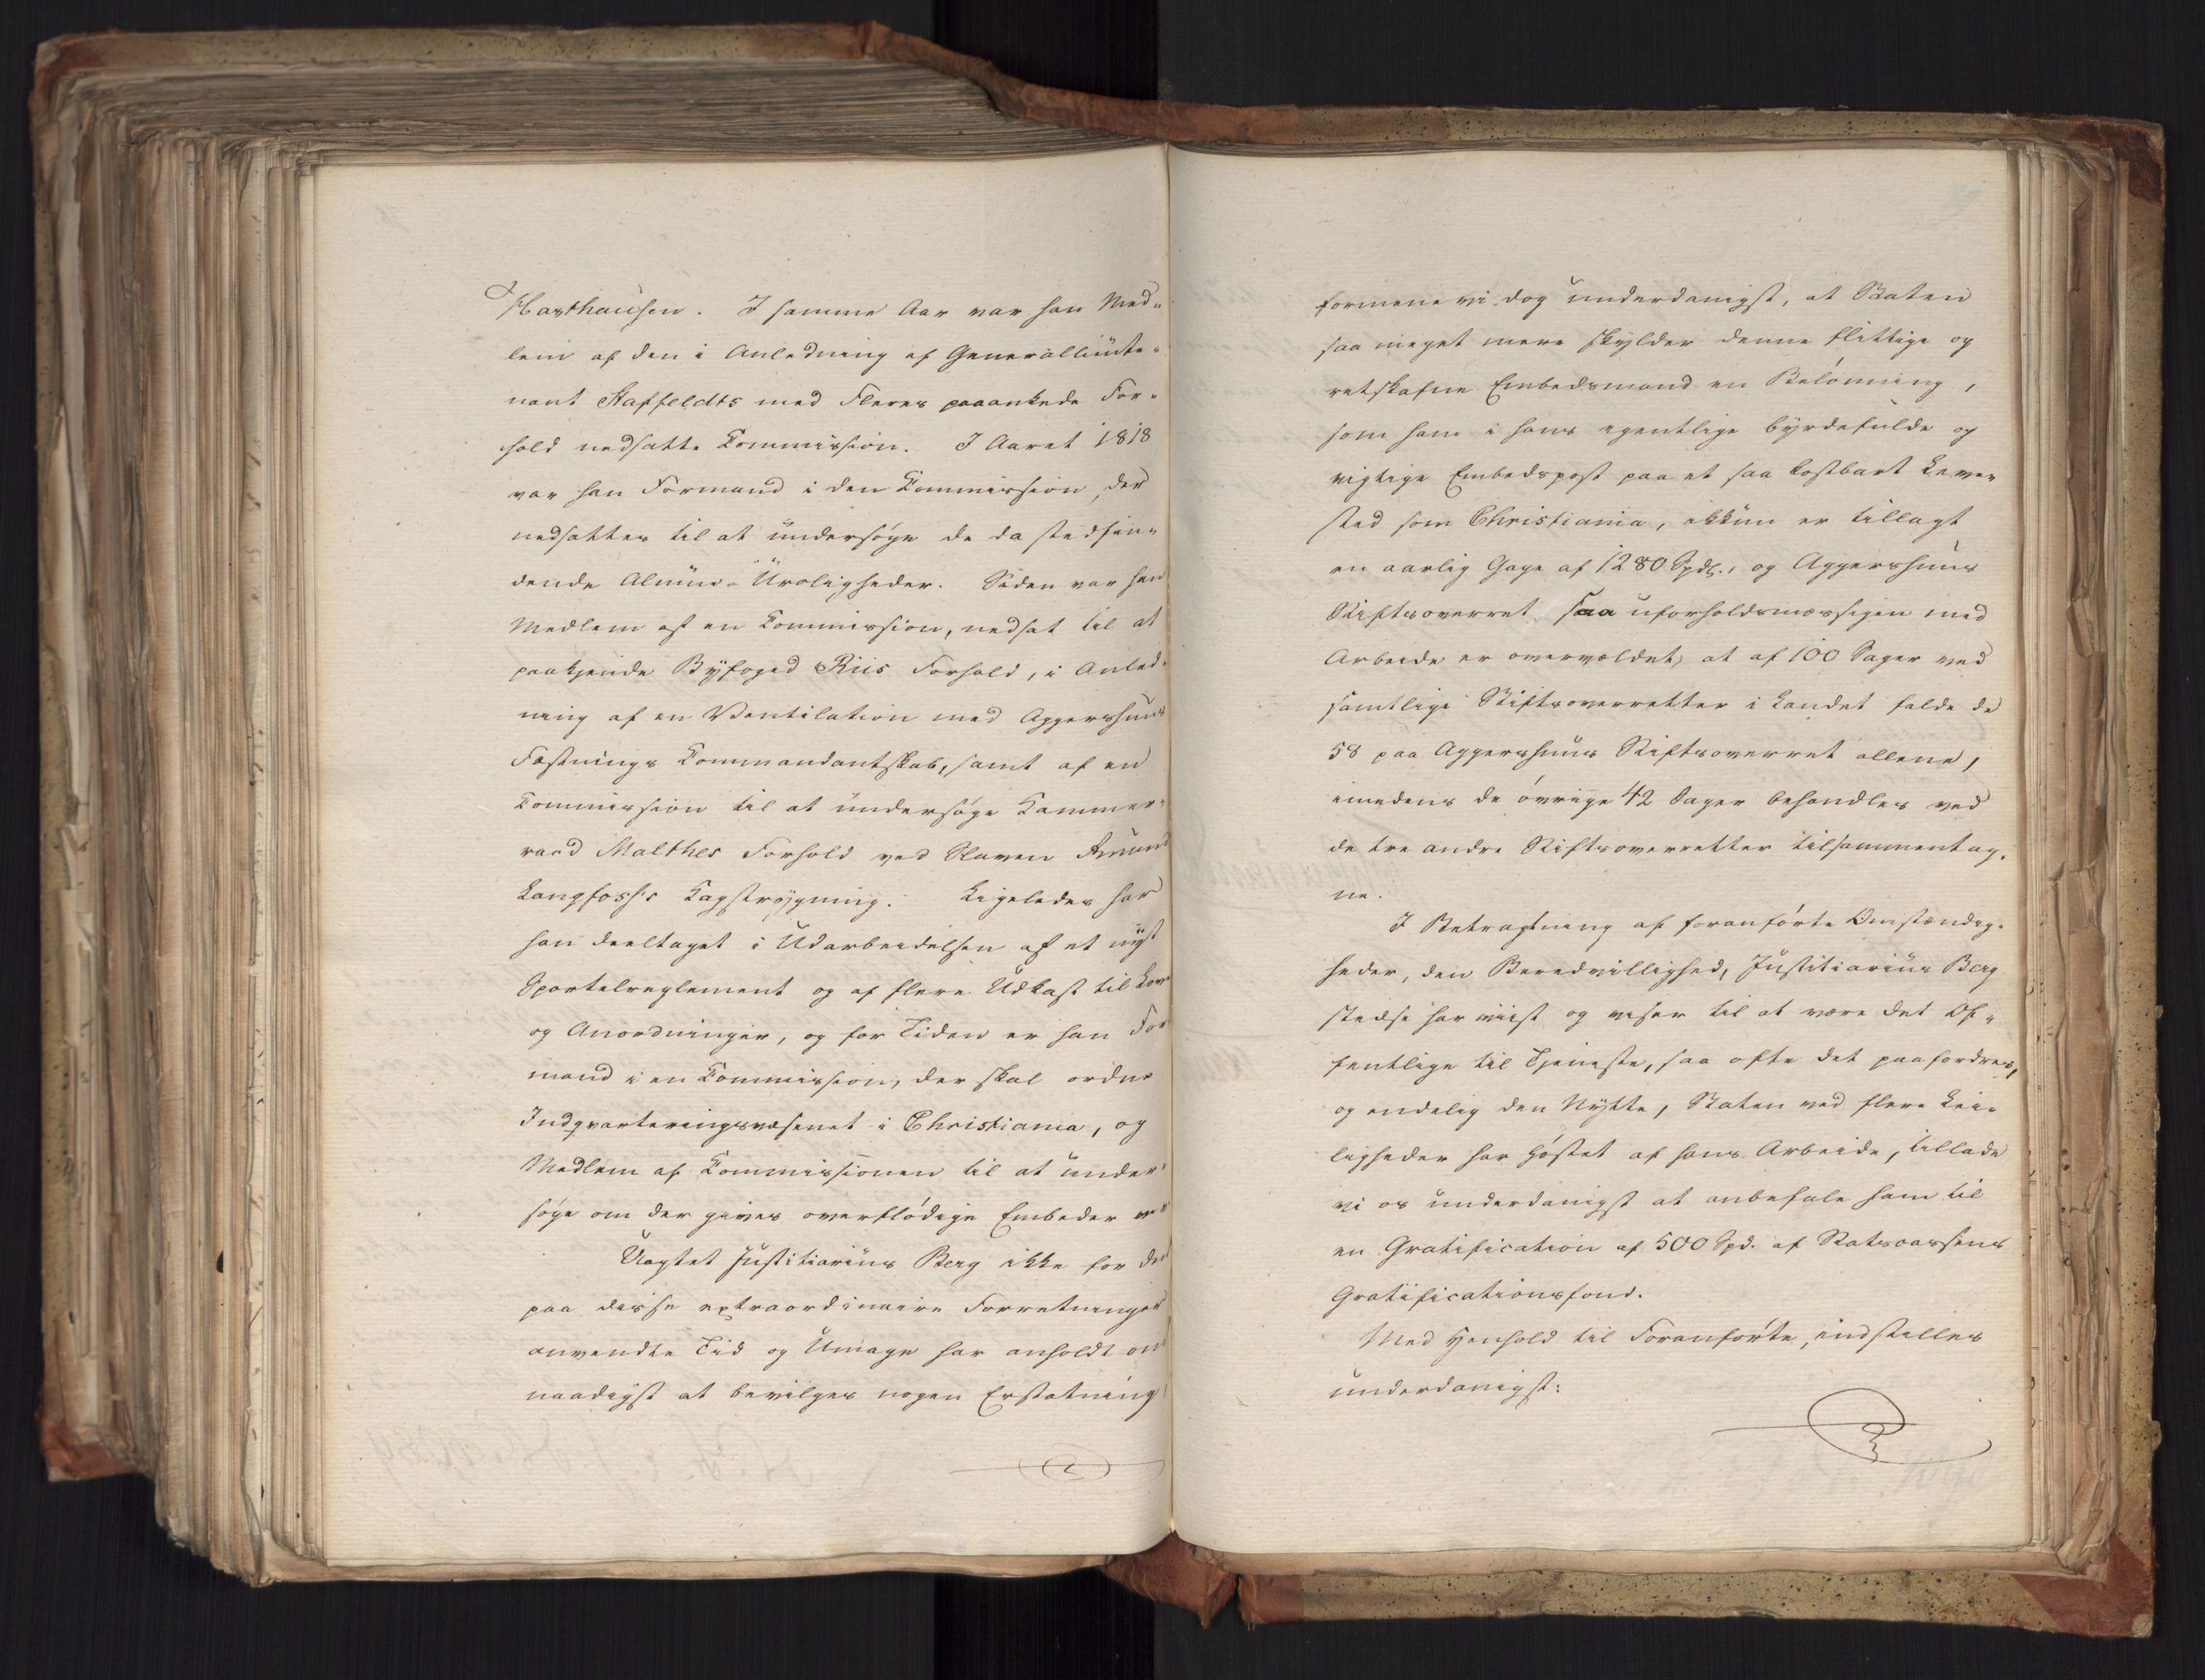 Haxthausen. I samme Aar var han Med-
lem af den i Anledning af Generallieute-
nant Staffeldts med Fleres paaankede For-
hold nedsatte Commission. I Aaret 1818
var han Formand i den Commission, der
nedsattes til at undersøge de da stedfin-
dende Almue-Uroligheder. Siden var han
Medlem af en Commission, nedsat til at
paakjende Byfoged Riis Forhold, i Anled-
ning af en Ventilation med Aggershuus
Fæstnings Commandantskab, samt af en
Commission til at undersøge Kammer-
raad Malthes Forhold ved Slaven Amund
Langfoss's Kagstrygning. Ligeledes har
han deeltaget i Udarbeidelsen af et nyt
Sportelreglement og af flere Udkast til Love
og Anordninger, og for Tiden er han For
mand i en Commission, der skal ordne
Indqvarteringsvæsenet i Christiania, og
Medlem af Commissionen til at under-
søge om der gives overflødige Embeder
Uagtet Justitiarius Berg ikke for den
paa disse extraordinaire Forretninger
anvendte Tid og Umage har anholdt om
naadigst at bevilges nogen Erstatning
formene vi dog underdanigst, at Staten
saa meget mere skylder denne flittige og
retskafne Embedsmand en Belønning,
som ham i hans egentlige byrdefulde og
vigtige Embedspost paa et saa kostbart Leve-
sted som Christiania, ikkun er tillagt
en aarlig Gage af 1280 Spdl., og Aggershuus
Stiftsoverret saa uforholdsmæssigen med
Arbeide er overvældet, at af 100 Sager ved
samtlige Stiftsoverretter i Landet falde de
58 paa Aggershuus Stiftsoverret allene,
imedens de øvrige 42 Sager behandles ved
de tre andre Stiftsoverretter tilsammentag-
ne.
I Betragtning af foranførte Omstændig-
heder, den Beredvillighed, Justitiarius Berg
stedse har viist og viser til at være det Of-
fentlige til Tjeneste, saa ofte det paafordres,
og endelig den Nytte, Staten ved flere Lei-
ligheder har høstet af hans Arbeide, tillade
vi os underdanigst at anbefale ham til
en Gratification af 500 Spd. af Statscassens
Gratificationsfond.
Med Henhold til Foranførte, indstilles
underdanigst: